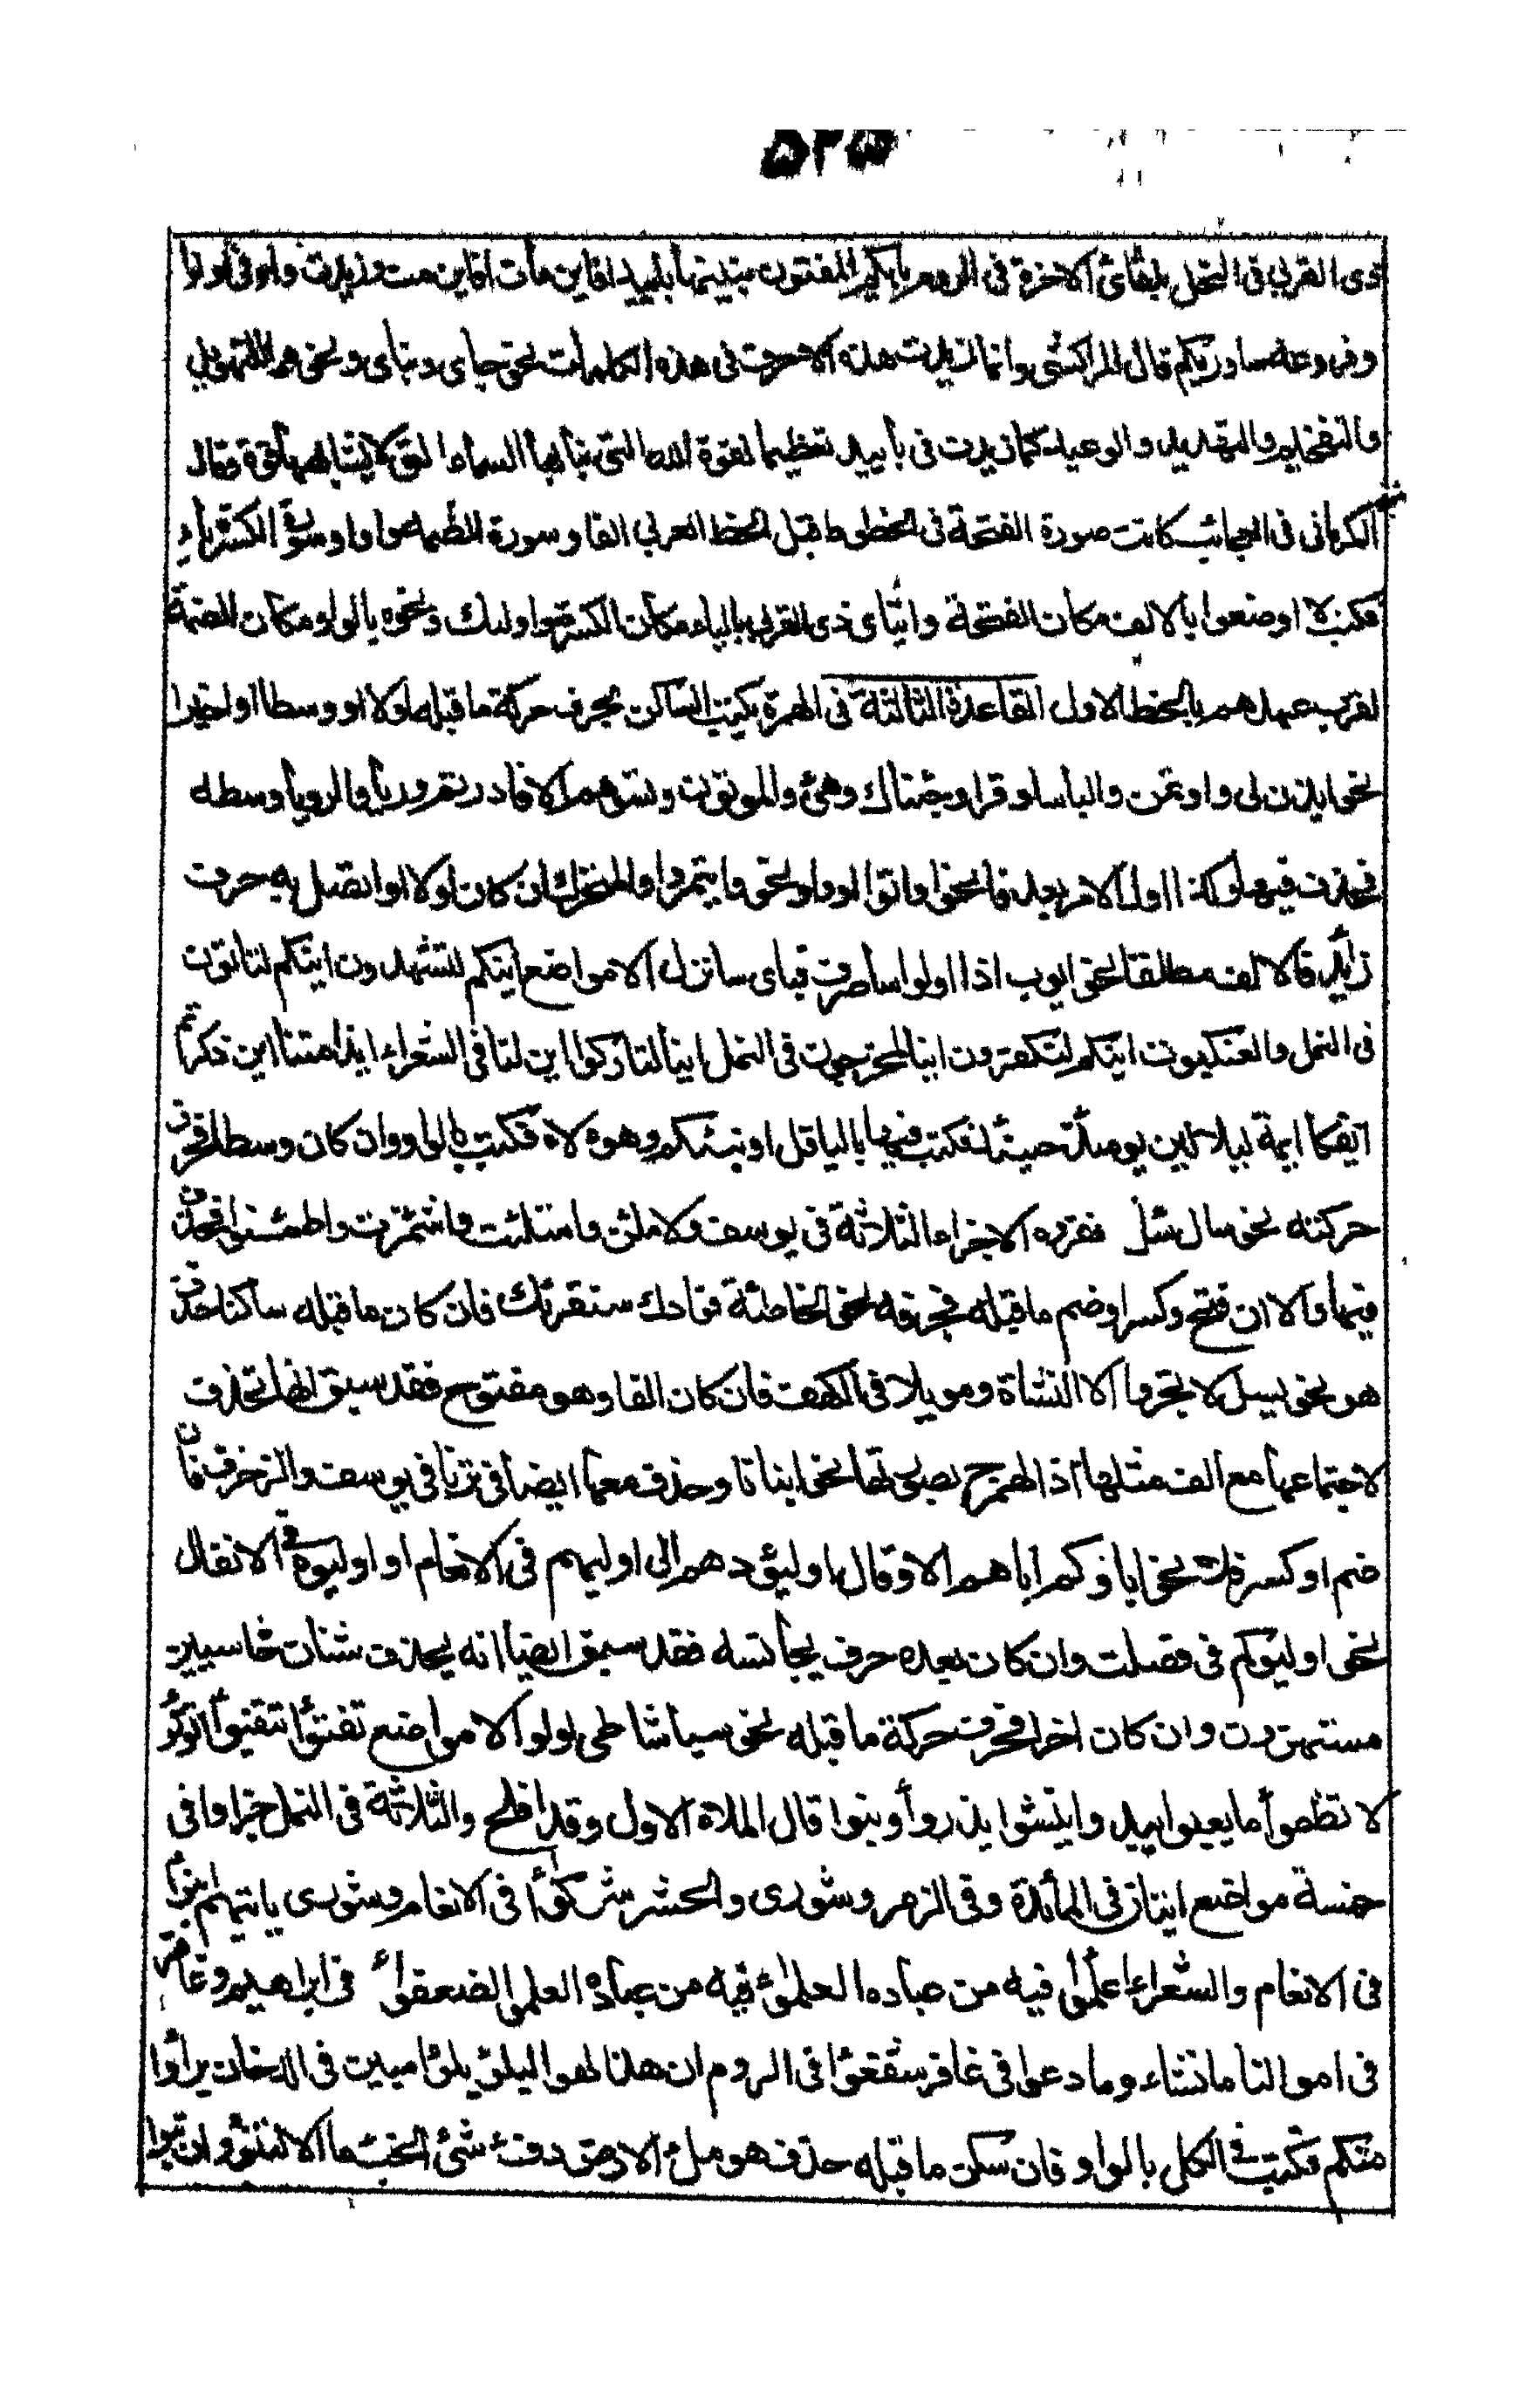 ٥٢٥
ذى القربى فى النحل بلقائ الاخرة فى الروم بايكم المفتون بنينها بأييد افاين مات افاين مت وزيدت واو فى اولوا
وفروعه ساوريكم قال المراكشى وانما زيدت هذه الاحرف فى هذه الكلمات نحو جاى ونباى ونحوهما للتهويل
والتفخيم والتهديد والوعيد كما زيدت فى بأييد تعظيما لقوة الله التى بنا بها السماء التى لا يشابهها قوة وقال
الكرمانى فى العجائب كانت صورة الفتحة فى الخطوط قبل الخط العربى الفا وصورة الضمة واوا وصورة الكسرة ياء
فكتب لا اوضعوا بالالف مكان الفتحة وايتاى ذى القربى بالياء مكان الكسرة واولئك ونحوه بالواو مكان الضمة
لقرب عهدهم بالخط الاول القاعدة الثالثة فى الهمزة يكتب الساكن بحرف حركة ما قبله اولا او وسطا او اخيرا
نحو ايذن لى واوتمن والبأسا وقرا وجئناك وهئ والموتون وتسؤهم الا فادرءتم ورءيا والرويا وسطه
فحذف فيها وكذا اول الامر بعد فا نحو فاتوا او واو نحو وايتمروا والمتحرك ان كان اولا او اتصل به حرف
زايد فالالف مطلقا نحو ايوب اذا اولوا سأصرف فباى سانزل الا مواضع ائنكم لتشهدون ائنكم لتاتون
فى النمل والعنكبوت ائنكم لتكفرون ائنا لمخرجون فى النمل ائنا لتاركوا اين لنا فى الشعراء ايذا متنا اين ذكرتم
ايفكا ايمة ليلا لين يومئذ حينئذ فكتب فيها بالياقل اونبئكم وهؤلاء فكتب بالواو وان كان وسطا فحرف
حركته نحو سال سئل نقرءه الا جزاءه الثلاثة فى يوسف ولاملئن وامتلئت واشمئزت واطمئنوا فحذف
فيها والا ان فتح وكسر او ضم ما قبله فبحرفه نحو الخاطئة فؤادك سنقرئك فان كان ما قبله ساكنا حذف
هو نحو يسل لا تجروا الا النشاة وموئلا فى الكهف فان كان الفا وهو مفتوح فقد سبق انها تحذف
لاجتماعها مع الف مثلها اذ الهمزة ح بصورتها نحو ابناءنا وحذف معها ايضا فى قرءنا فى يوسف والزخرف فان
ضم او كسر فلا نحو اباؤكم ابائهم الا وقال اوليؤهم الى اوليهم فى الانعام ان اوليؤه فى الانفال
نحن اوليؤكم فى فصلت وان كان بعده حرف يجانسه فقد سبق ايضا انه يحذف شنان خاسيين
مستهزون وان كان اخرا فبحرف حركة ما قبله نحو سبا شاطى لولو الا مواضع تفتؤا يتفيؤا اتوكؤا
لا تظمؤا ما يعبؤا يبدؤا ينشؤا يذرؤا نبؤا قال الملاء الاول وقد افلح والثلاثة فى النمل جزاؤا فى
خمسة مواضع اثنان فى المائدة وفى الزمر وشورى والحشر شركؤا فى الانعام وشورى ياتيهم انبؤا
فى الانعام والشعراء علمؤا فيه من عباده العلمؤا الضعفؤا فى ابراهيم وغافر
فى اموالنا ما نشاء وما دعوا فى غافر شفعؤا فى الروم ان هذا لهو البلؤ بلؤا مبين فى الدخان برآؤا
منكم فكتب فى الكل بالواو فان سكن ما قبله حذف هو ملء الارض دفء شئ الخبء ماء الا لتنوؤ وان تبوا